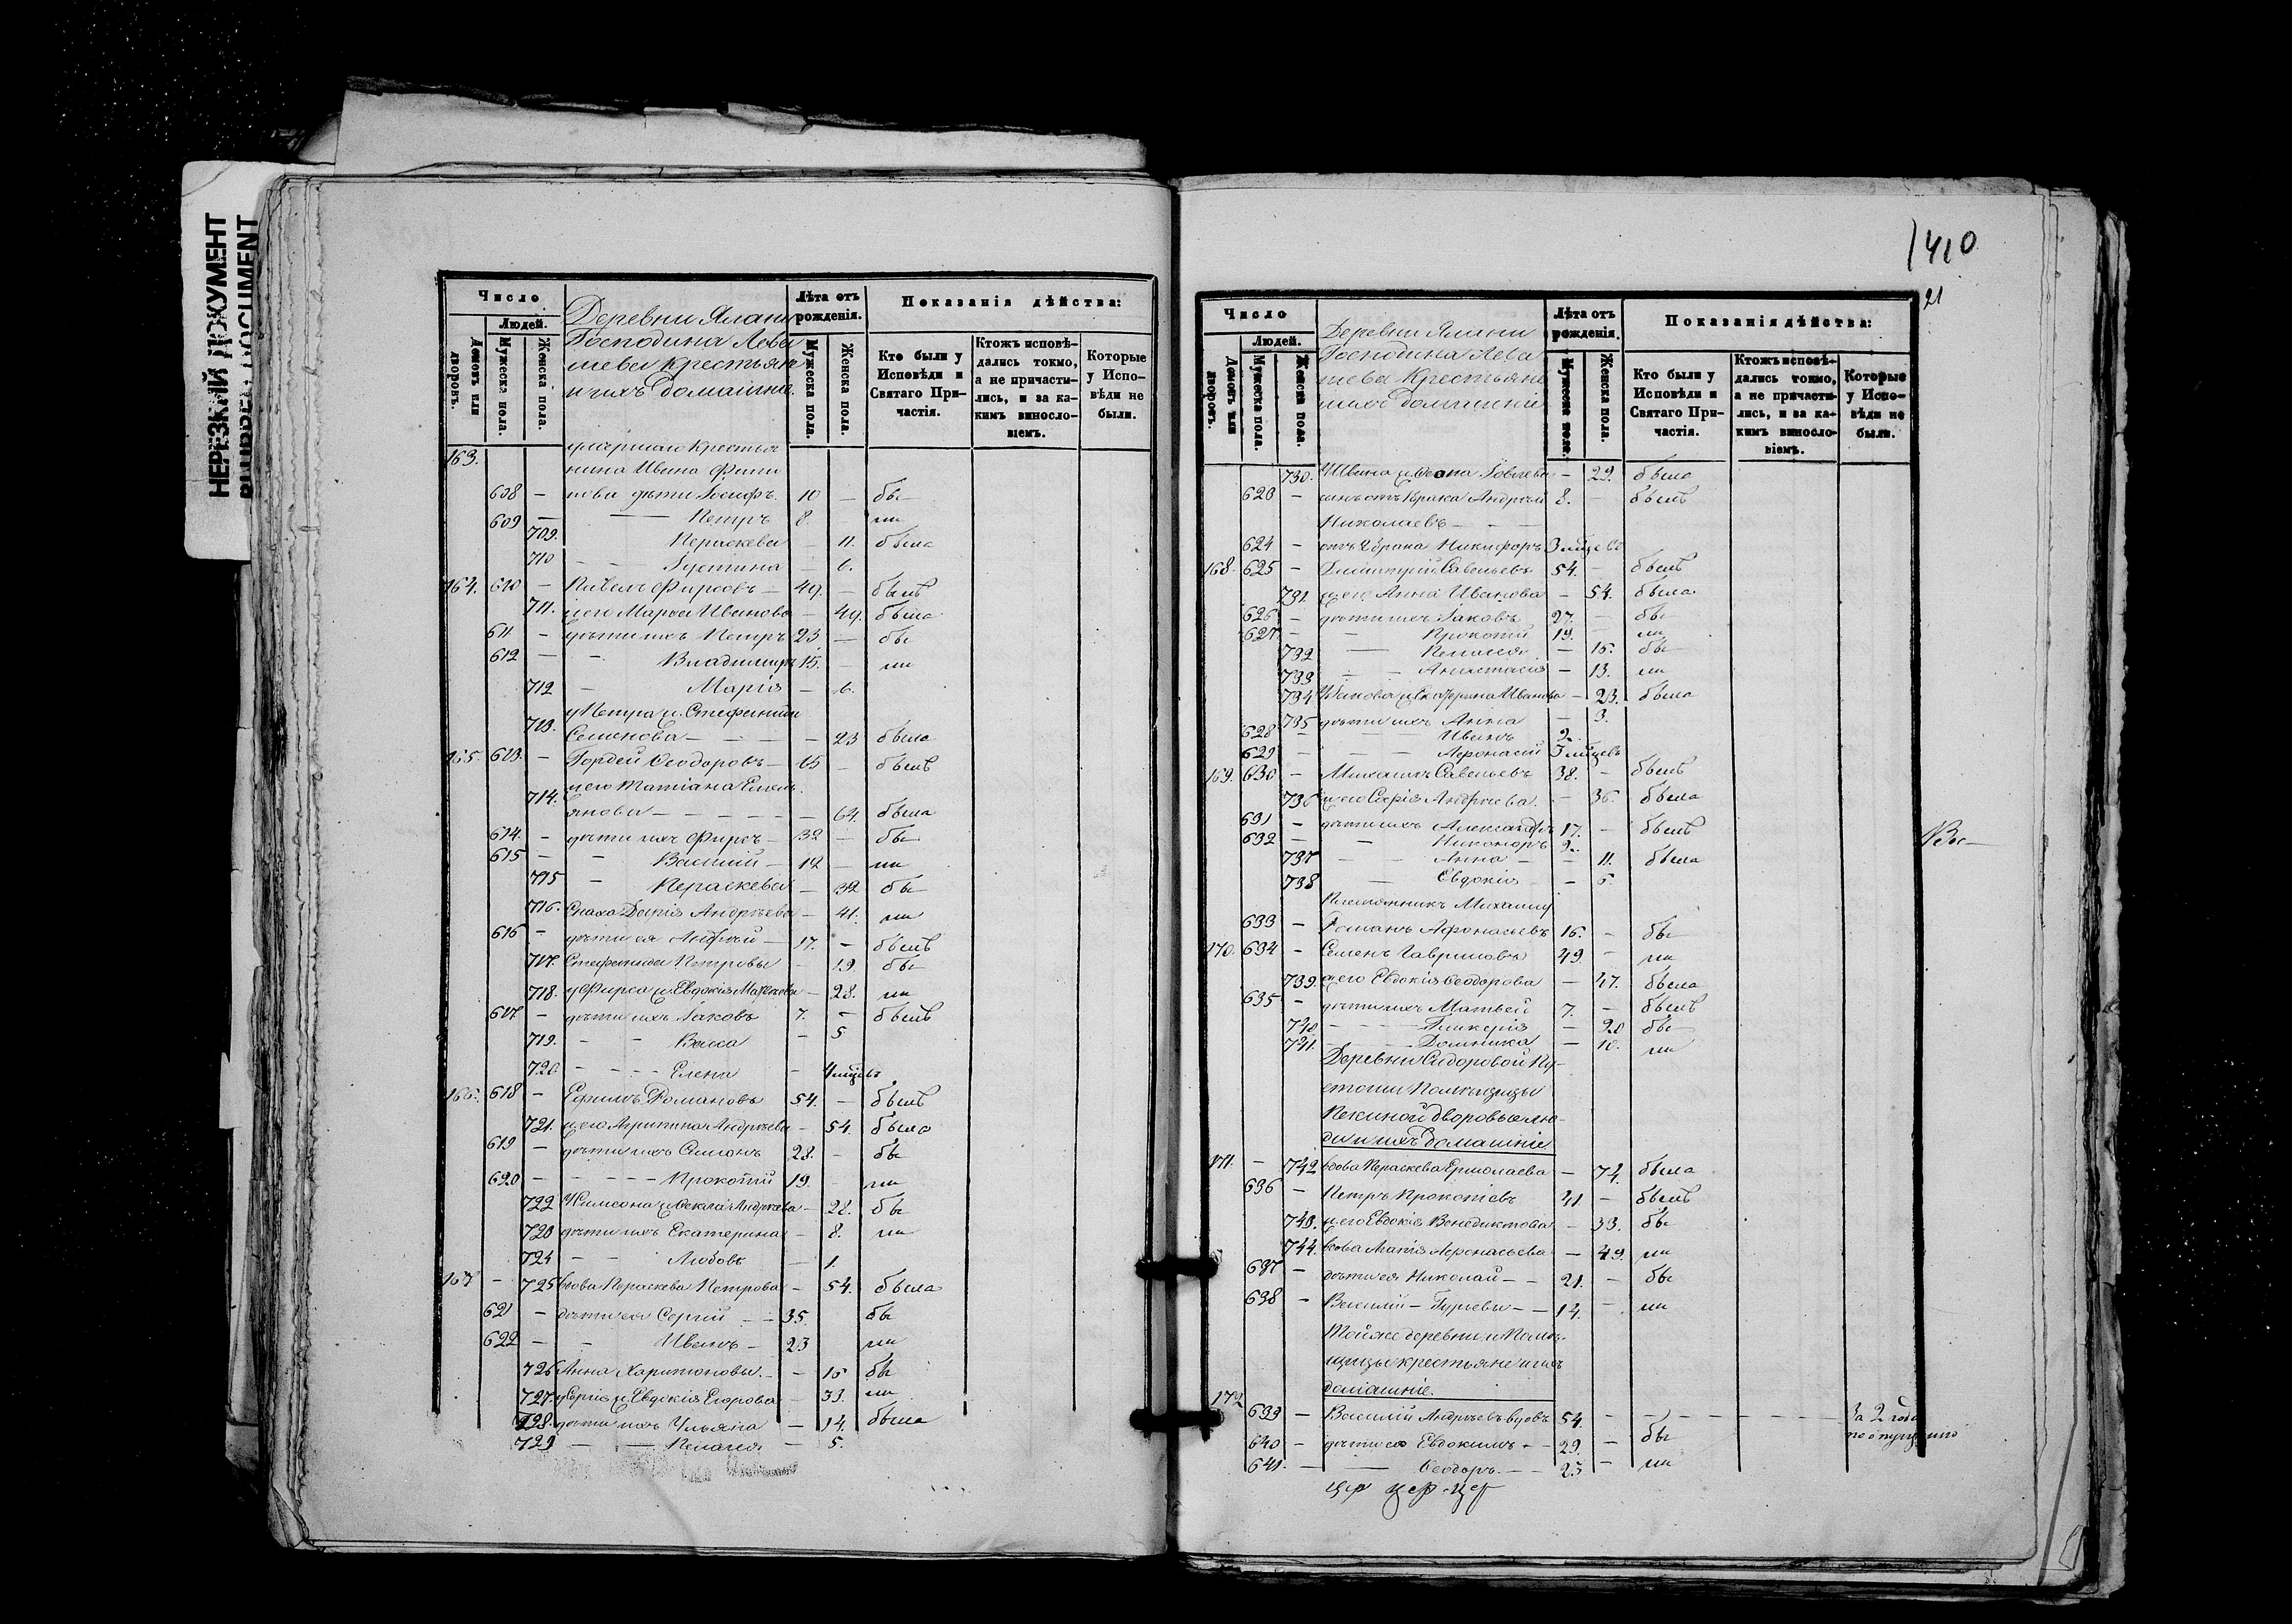 НЕРЕЗКИЙ ДОКУМЕНТ
DOCUMENT
Число
Людей.
Домовъ или дворовъ.
Мужеска пола.
Женска пола.
Деревни Ялани
Господина Лева
шева крестьяне
и ихъ домашние.
Лѣта отъ рожденія.
Мужеска пола.
Женска пола.
Показанія дѣйства:
Кто были у Исповѣди и Святаго Причастія.
Ктожъ исповѣдались токмо, а не причастились, и за какимъ винословіемъ.
Которые у Исповѣди не были.
163. умершаго крестья
нина Ивана
608 – дѣти Іосифъ 10 – бы
609 – Петръ 8. – ли
709. Параскева – 11. была
710 – – Іустина – 6.
164. 610 – Павелъ Фирсовъ – 49. – былъ
711. ж его Марѳа Иванова – 49. была
611 – дѣти ихъ Петръ 23 – бы
612 – – Владимиръ 15. – ли
712 – Марія – 6.
713. у Петра ж. Стефанида
Семенова – – – 23 была
165. 613. – Гордей Ѳеодоровъ – 65 – былъ
714. ж его Татіана Емель
янова – – – 64. была
614. – дѣти ихъ Фирсъ – 32 – бы
615 – – Василій – 12 – ли
715 – Параскева – 32 бы
716. Сноха Дарія Андреева – 41. ли
616 – дѣти ея Андрей – 17. – былъ
717. Стефанида Петрова – 19. бы
718. у Фирса ж. Евдокія – 28. ли
617 – дѣти ихъ Іаковъ 7. – былъ
719. – – Васса – 5
720. – – – Елена – 4 мѣсяцевъ
166. 618 – Ефимъ Романовъ 54. – былъ
721. ж его Агрипина Андреева – 54. была
619 – дѣти ихъ Симонъ 28. – бы
620 – – – – Прокопій 19. – ли
722 У Симона ж. Андреева – 28. бы
723 дѣти ихъ Екатерина – 8. ли
724 – – Любовь – 1.
167 – 725 вдова Параскева Петрова – 54. была
621 – дѣти ея Сергій – – 35. бы
622 – – Иванъ – 23 ли
726 Анна Харитонова. – – 16 бы
727. у Сергія ж. Евдокія Егорова – 33. ли
728. дѣти ихъ Ульяна – 14. была
729 – – Пелагея – 5.
1410
21
Число
Людей.
Домовъ или дворовъ.
Мужеска пола.
Женска пола.
Деревни Ялани
Господина Лева
шева крестьяне
и ихъ домашніе
Лѣта отъ рожденія.
Мужеска пола.
Женска пола.
Показанія дѣйства:
Кто были у Исповѣди и Святаго Причастія.
Ктожъ исповѣдались токмо, а не причастились, и за какимъ винословіемъ.
Которые у Исповѣди не были.
730. У Ивана ж. – 29. была
623 – брака Андрей 8. – былъ
Николаевъ – – –
624 – отъ 2 брака Никифоръ 3 мѣсяцевъ
168. 625 – Димитрій Савельевъ 54. – былъ
731. ж его Анна Иванова – 54. была
626 – дѣти ихъ Іаковъ 27. – бы
627. – – Прокопій 19. – ли
732 – Пелагея – 16. бы
733 – – Анастасія – 13. ли
734 У Іакова ж Екатерина Иванова – 23. была
735 дѣти ихъ Анна – 3.
628 – – – Иванъ 2
629 – – – Афонасій 3 мѣсяцевъ
169. 630 – Михаилъ Савельевъ 38. – былъ
736 ж его Софія Андреева. – 36. была
631 – дѣти ихъ Александръ 17. – былъ
632 – – Никоноръ 2.
737 – – Анна – – 11. была
738 – Евдокія – 5.
Племянникъ Михаилу
633 – Романъ Афонасьевъ 16. – бы
170. 634 – Семенъ Гавриловъ 49. – ли
739. ж его Евдокія Ѳеодорова – 47. была
635 – дѣти ихъ Матвей 7. – былъ
740 – – – Гликерія – 20 бы
741. – – – Домника – 10. ли
Деревни Сидоровой Пу
стоши Помѣщицы
дворовые лю
ди и ихъ домашніе
171. – 742 вдова Параскева Ермолаева – 74. была
636 – Петръ Прокопіевъ 41 – былъ
743. ж его Евдокія Венедиктова – 33. бы
744. вдова Агапія Афонасьева – 49. ли
637 – дѣти ея Николай – – 21. – бы
638 – Василій – Гурьевы – – 14. – ли
Той же деревни и Помѣ
щицы крестьяне и ихъ
домашніе.
172 639 – Василій Андреевъ вдовъ 54. – – – – – – за 2 года
по опущенію
640 – дѣти его Евдокимъ – – 29. – бы
641. – – Ѳеодоръ. – – 25 – ли